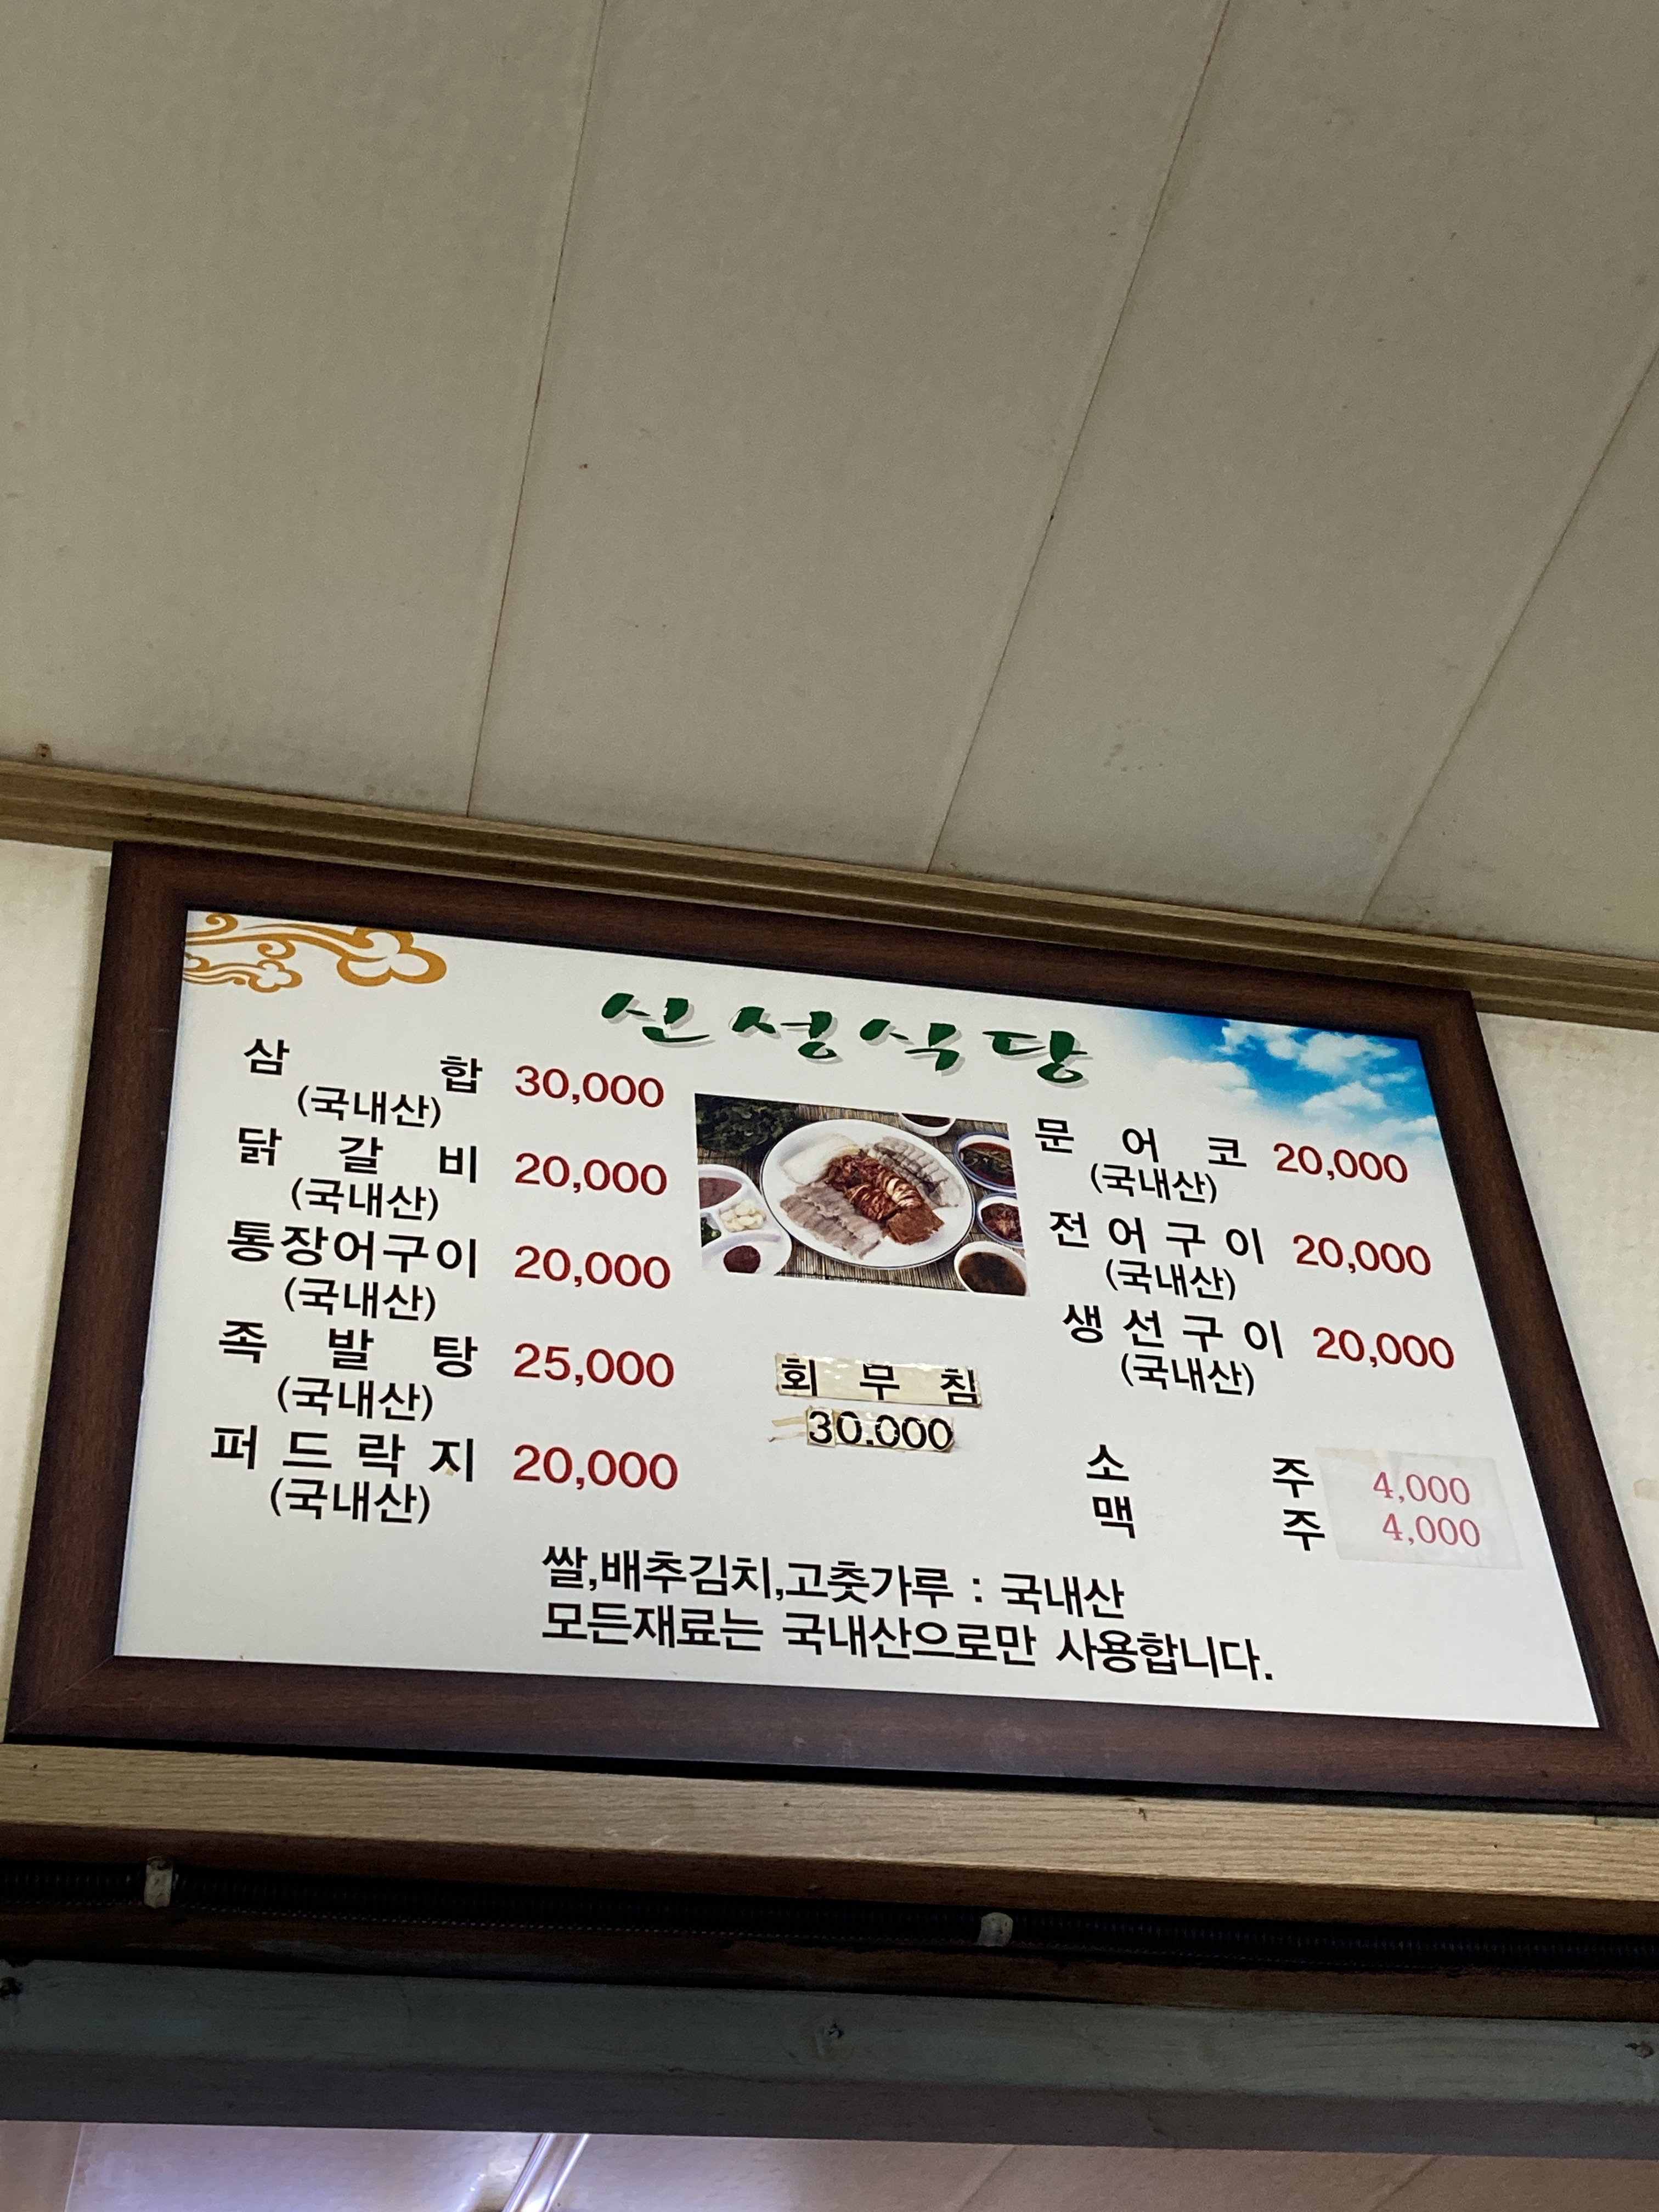 신성식당
삼 합 30,000
(국내산)
닭 갈 비 20,000
(국내산)
통장어구이 20,000
(국내산)
족 발 탕 25,000
(국내산)
퍼 드 락 지 20,000
(국내산)
회 무 침
30.000
문 어 코 20,000
(국내산)
전 어 구 이 20,000
(국내산)
생 선 구 이 20,000
(국내산)
소 주 4,000
맥 주 4,000
쌀,배추김치,고춧가루 : 국내산
모든재료는 국내산으로만 사용합니다.